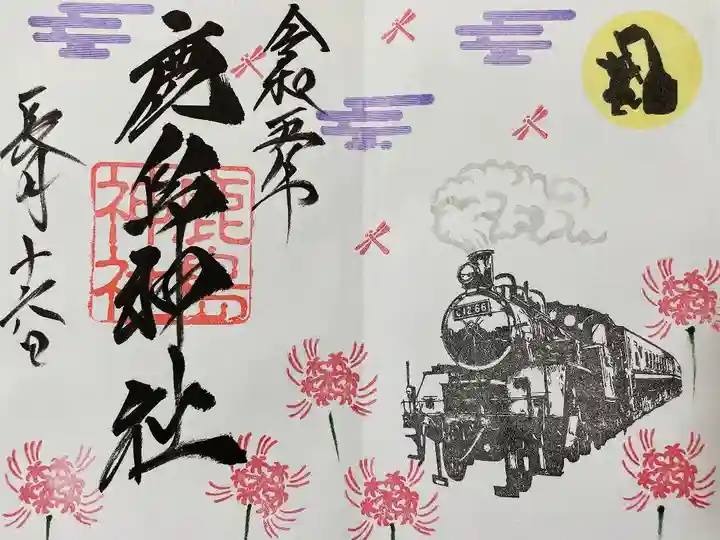 令和五年
鹿島神社
鹿島
神社
長月十六日
C12 66